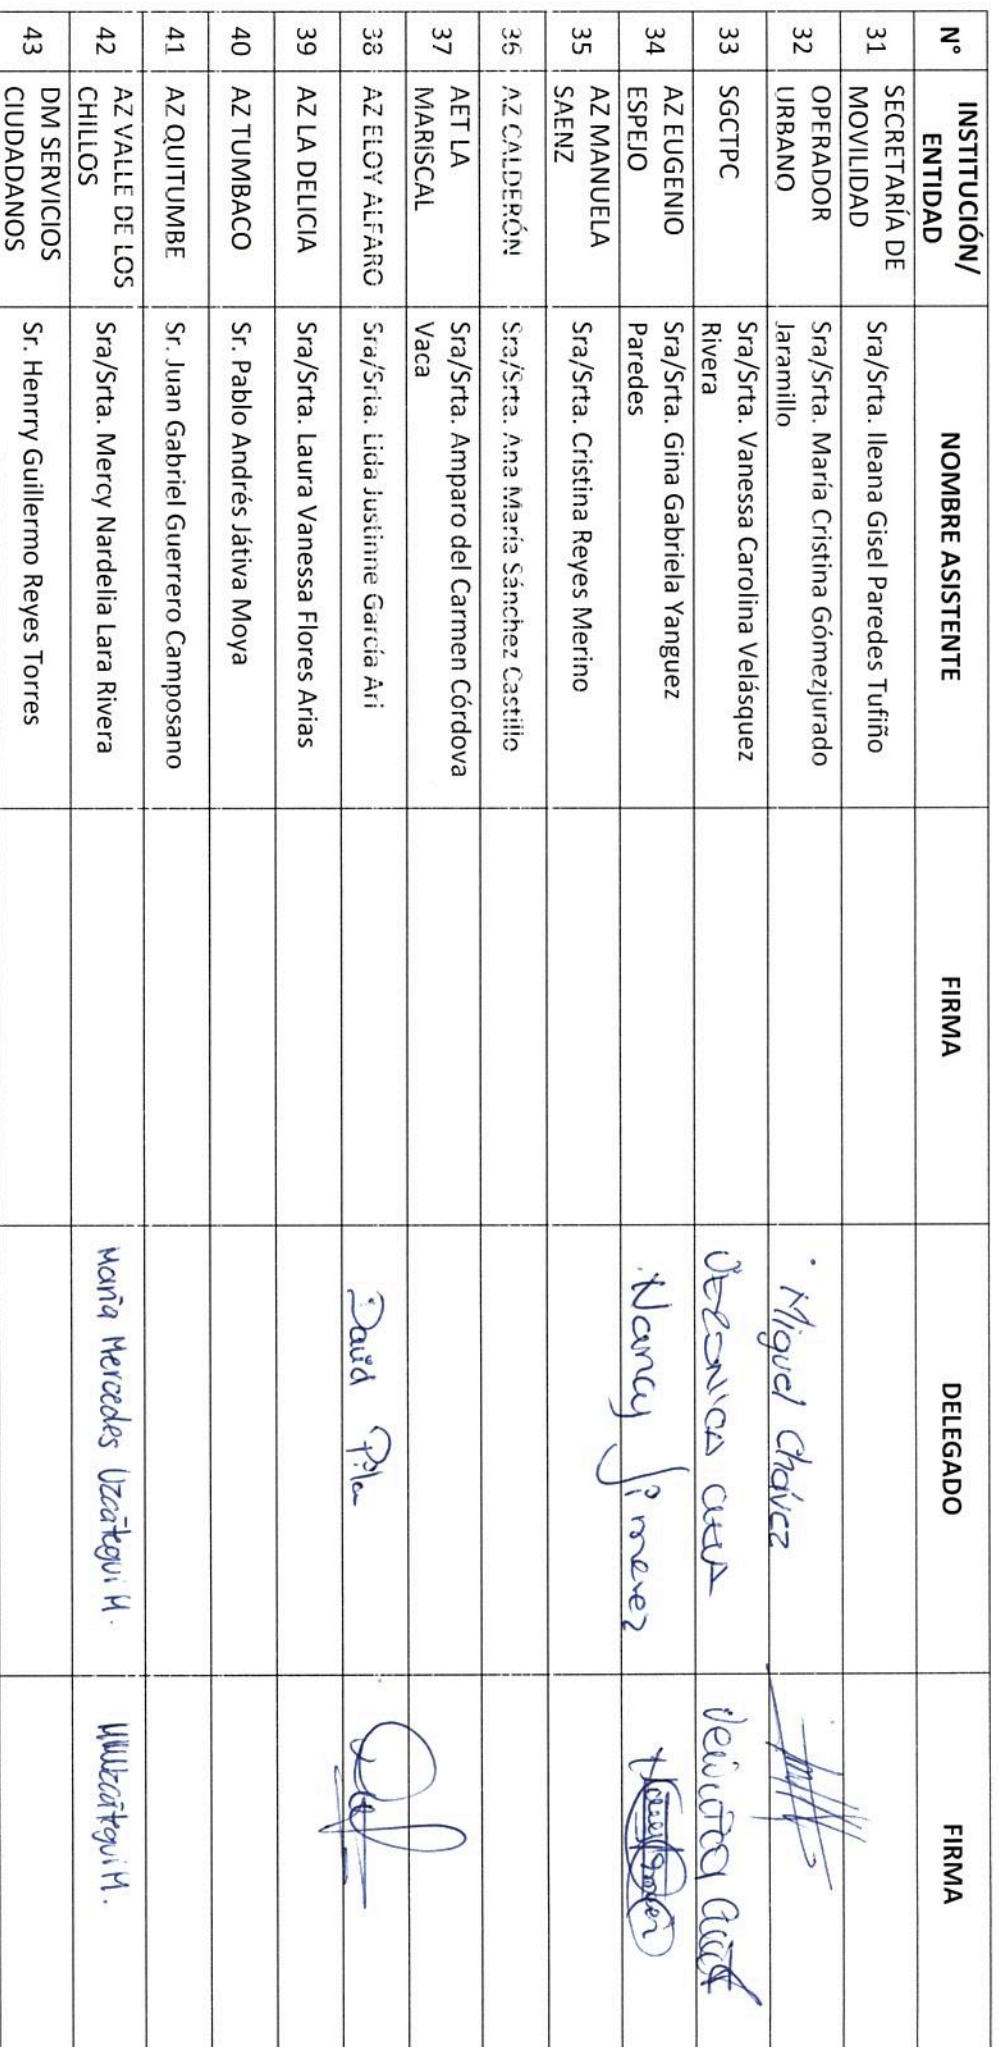 N° INSTITUCIÓN/ ENTIDAD NOMBRE ASISTENTE FIRMA DELEGADO FIRMA
31 SECRETARÍA DE MOVILIDAD Sra/Srta. Ileana Gisel Paredes Tufiño
32 OPERADOR URBANO Sra/Srta. María Cristina Gómezjurado Jaramillo Miguel Chávez
33 SGCTPC Sra/Srta. Vanessa Carolina Velásquez Rivera VERONICA
34 AZ EUGENIO ESPEJO Sra/Srta. Gina Gabriela Yanguez Paredes Nancy Jimenez
35 AZ MANUELA SAENZ Sra/Srta. Cristina Reyes Merino
36 AZ CALDERÓN Sra/Srta. Ana María Sánchez Castillo
37 AET LA MARISCAL Sra/Srta. Amparo del Carmen Córdova Vaca
38 AZ ELOY ALFARO Sra/Srta. Lida Justinne García Ari David Pila
39 AZ LA DELICIA Sra/Srta. Laura Vanessa Flores Arias
40 AZ TUMBACO Sr. Pablo Andrés Játiva Moya
41 AZ QUITUMBE Sr. Juan Gabriel Guerrero Camposano
42 AZ VALLE DE LOS CHILLOS Sra/Srta. Mercy Nardelia Lara Rivera María Mercedes Uzcátegui M.
43 DM SERVICIOS CIUDADANOS Sr. Henrry Guillermo Reyes Torres